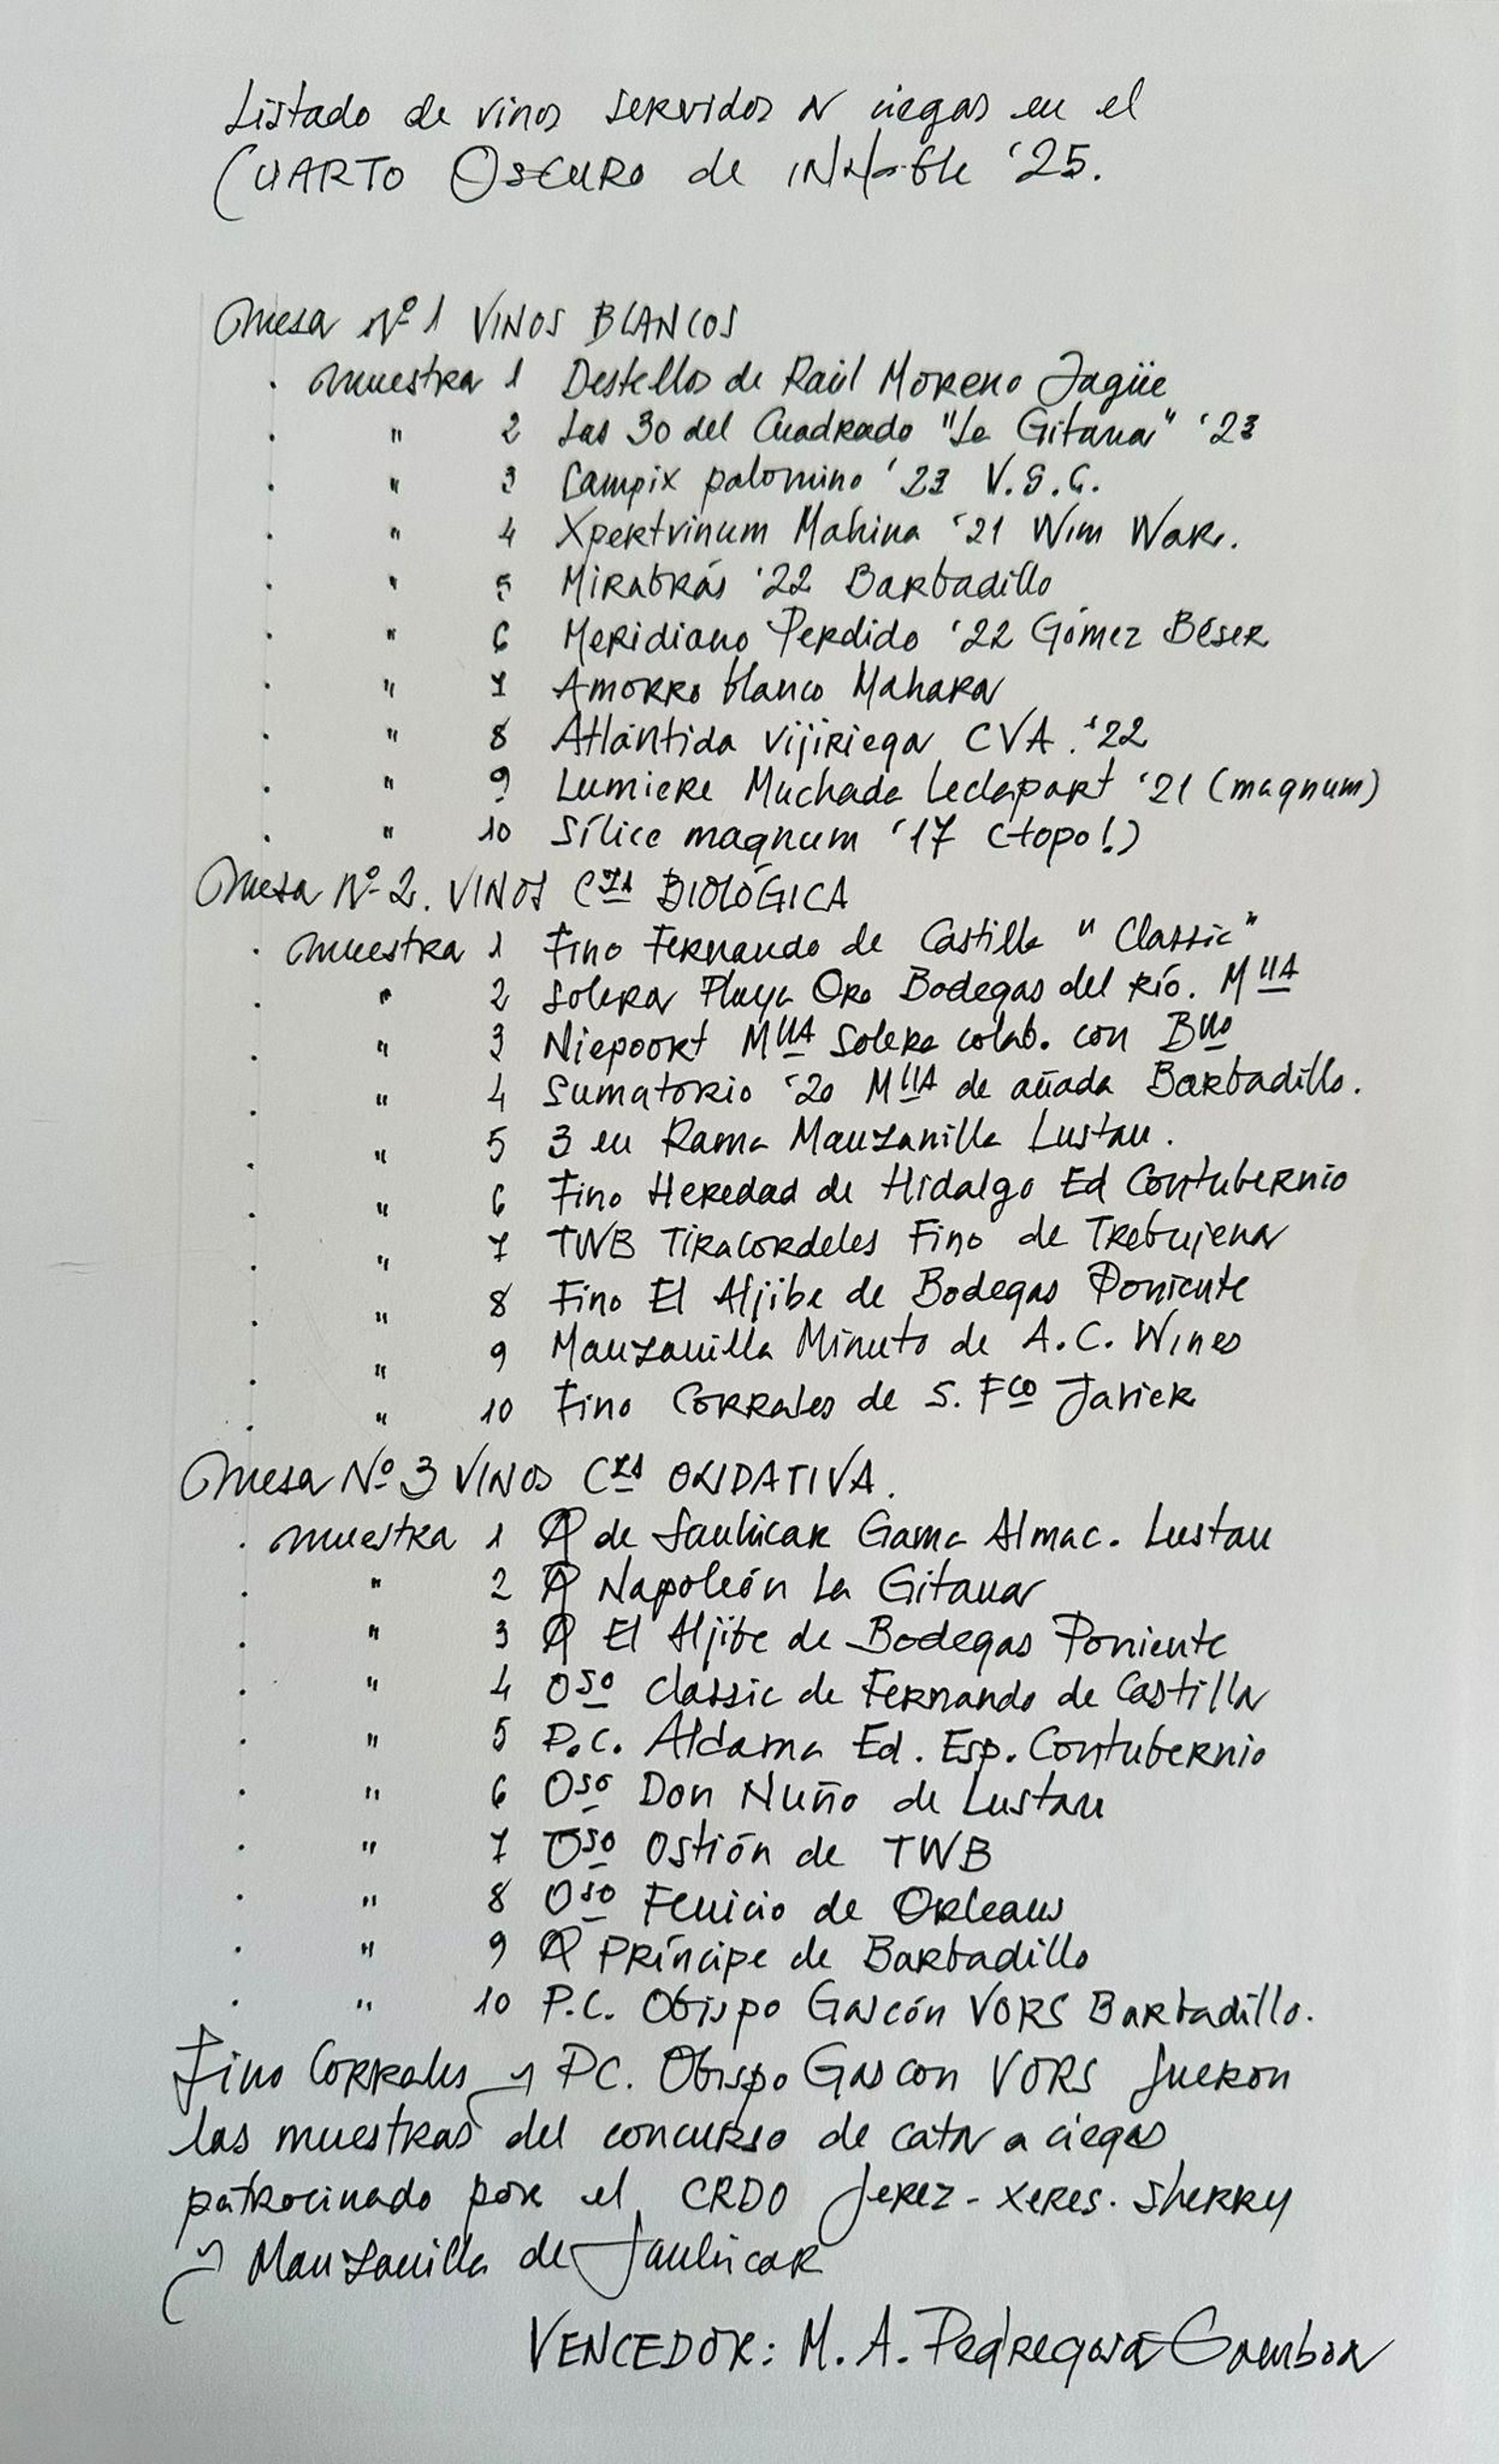 Listado de vinos servidos a ciegas en el
CUARTO OSCURO de '25.
Mesa Nº 1 VINOS BLANCOS
. muestra 1 Destellos de Raúl Moreno Jagüe
. " 2 Las 30 del Cuadrado "La Gitana" '23
. " 3 Campix palomino '23 V.S.C.
. " 4 Xpertvinum Mahina '21 Wim War.
. " 5 Mirabrás '22 Barbadillo
. " 6 Meridiano Perdido '22 Gómez Béser
. " 7 Amorro blanco Mahara
. " 8 Atlántida Vijiriega CVA. '22
. " 9 Lumiere Muchada Leclapart '21 (magnum)
. " 10 Sílice magnum '17 (topo!)
Mesa Nº 2. VINOS Cza BIOLÓGICA
. muestra 1 Fino Fernando de Castilla "Classic"
. " 2 Solera Playa Oro Bodegas del Río. MllA
. " 3 Niepoort MllA Solera colab. con Bllo
. " 4 Sumatorio '20 MllA de añada Barbadillo.
. " 5 3 en Rama Manzanilla Lustau.
. " 6 Fino Heredad de Hidalgo Ed Contubernio
. " 7 TWB Tiracordeles Fino de Trebujena
. " 8 Fino El Aljibe de Bodegas Poniente
. " 9 Manzanilla Minuto de A.C. Wines
. " 10 Fino Corrales de S. Fco Javier
Mesa Nº 3 VINOS Cza OXIDATIVA.
. muestra 1 A de Sanlúcar Gama Almac. Lustau
. " 2 A Napoleón La Gitana
. " 3 A El Aljibe de Bodegas Poniente
. " 4 Oso Classic de Fernando de Castilla
. " 5 P.C. Aldama Ed. Esp. Contubernio
. " 6 Oso Don Nuño de Lustau
. " 7 Oso Ostión de TWB
. " 8 Oso Fenicio de Orleans
. " 9 A Príncipe de Barbadillo
. " 10 P.C. Obispo Gascón VORS Barbadillo.
Fino Corrales y PC. Obispo Gascon VORS fueron
las muestras del concurso de cata a ciegas
patrocinado por el CRDO Jerez - Xeres. Sherry
y Manzanilla de Sanlúcar
VENCEDOR: M. A. Pedregosa Gamboa